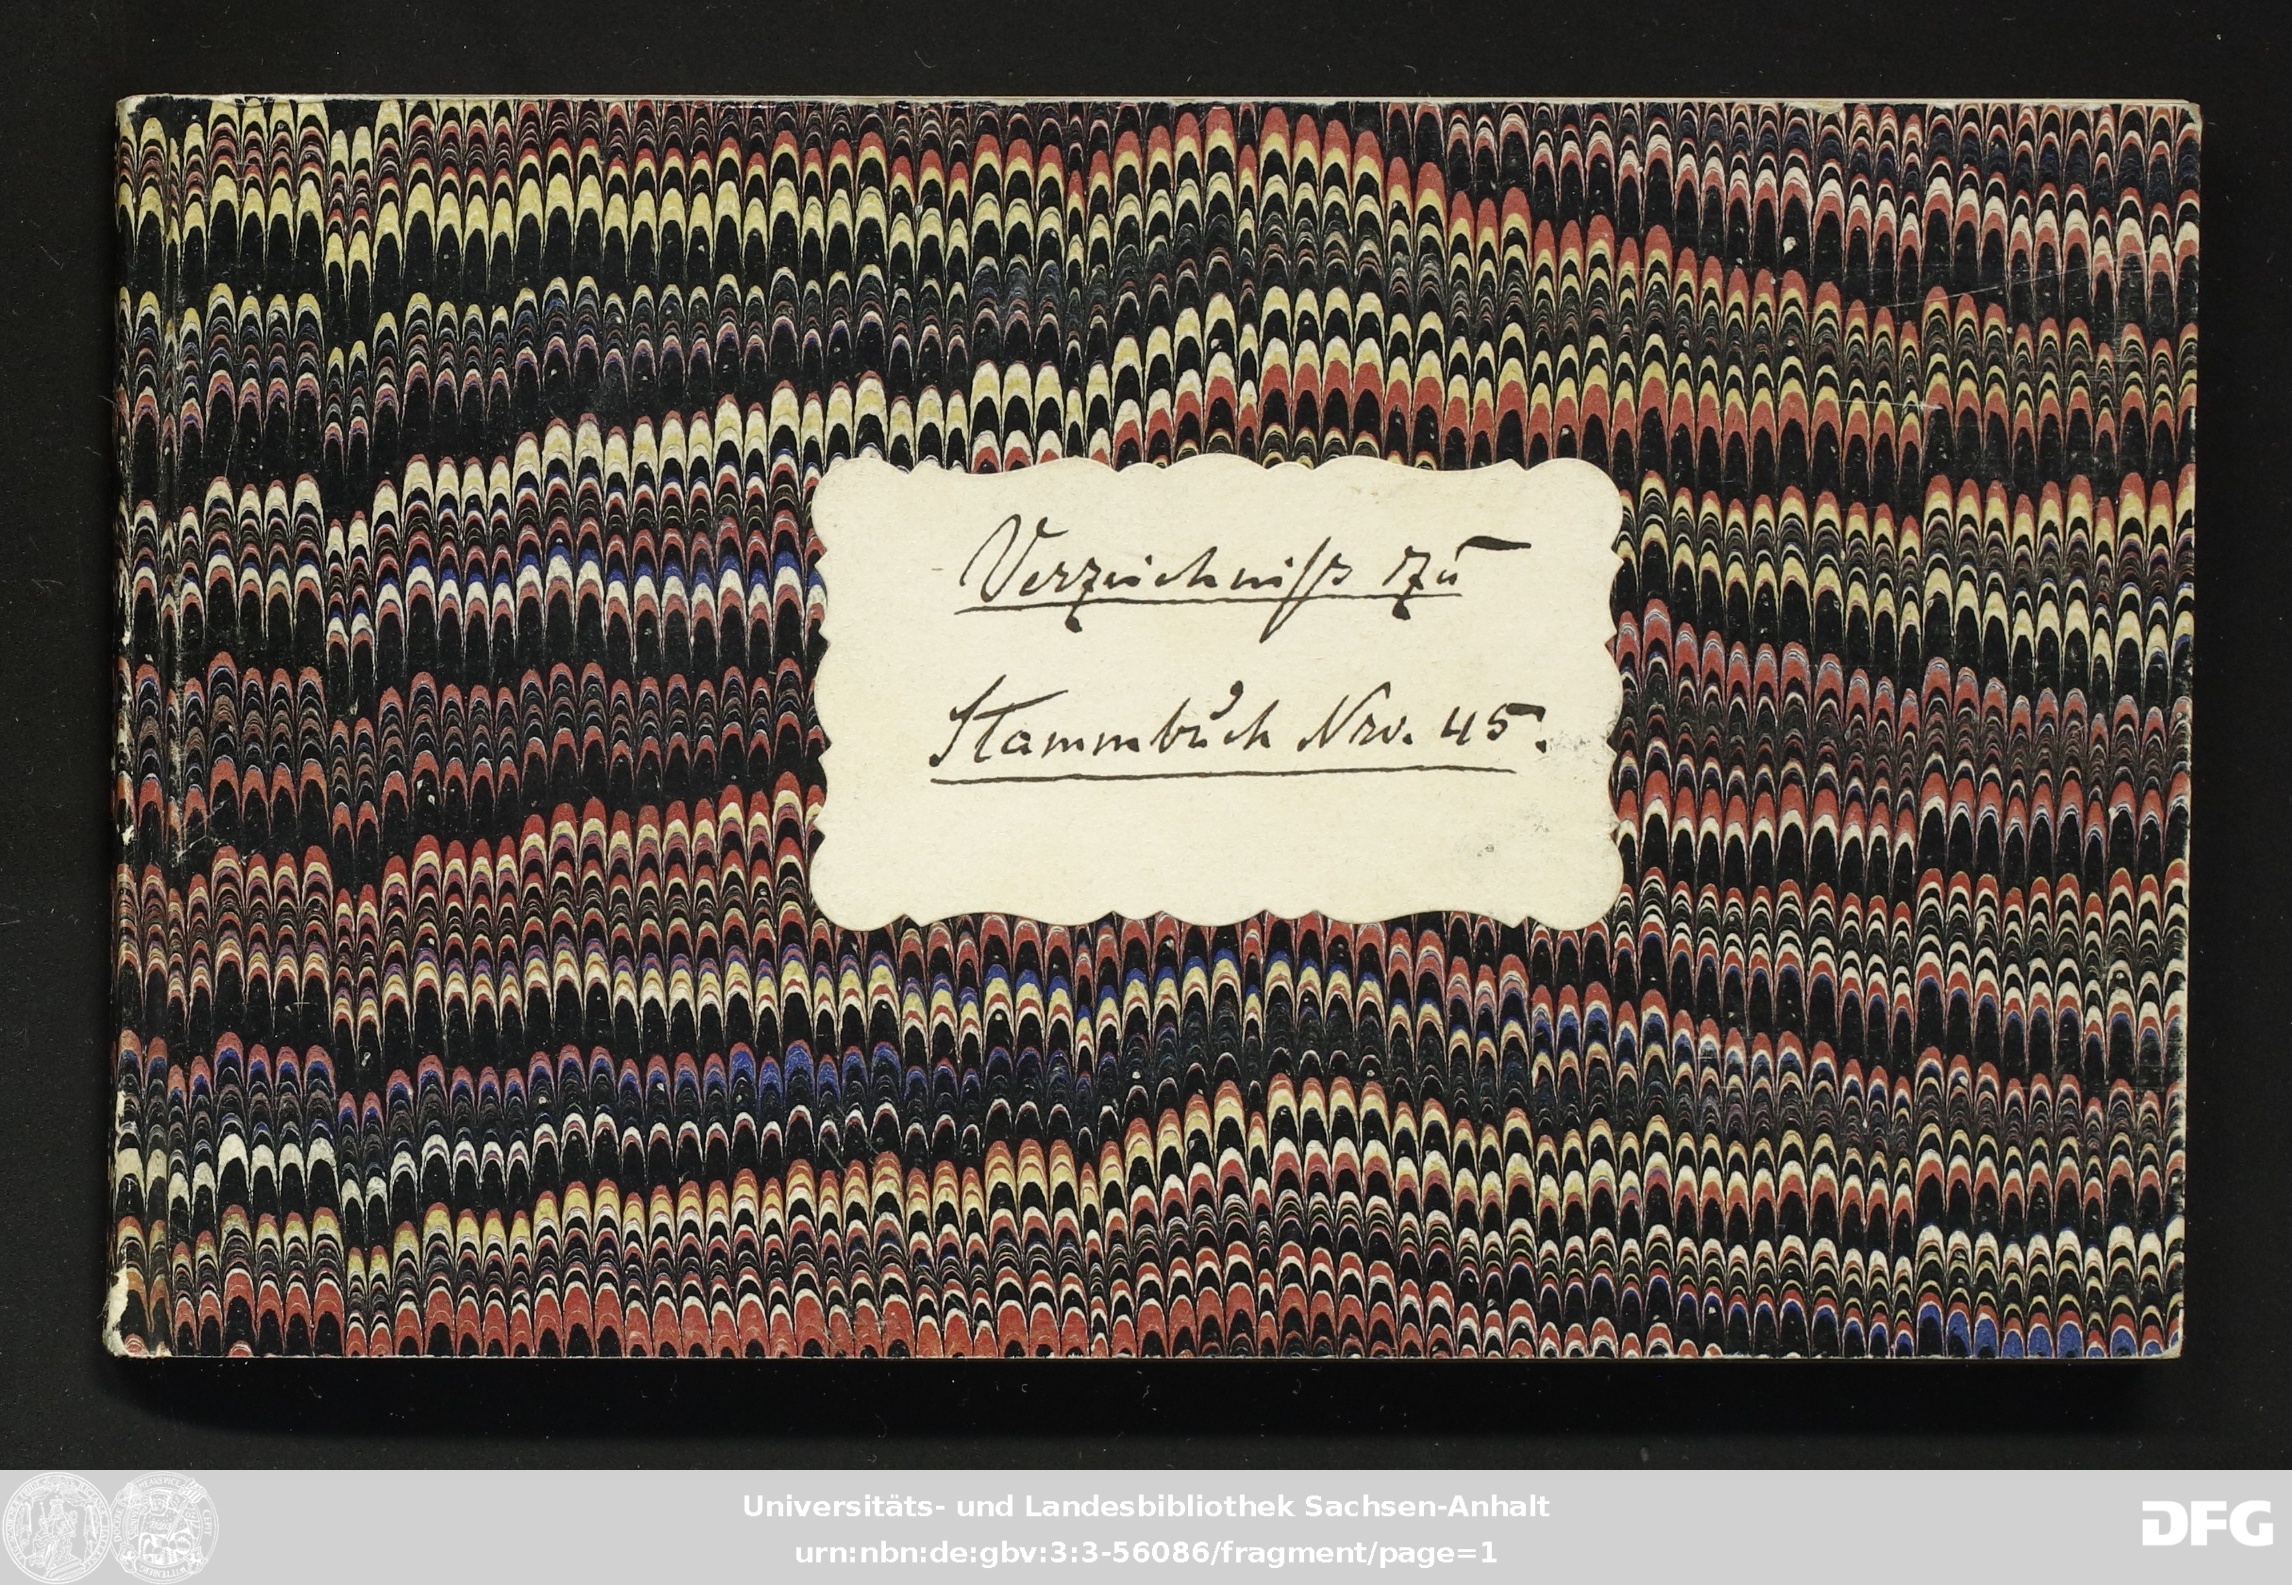 Verzeichniß zu
Stammbuch Nro. 45.
Universitäts- und Landesbibliothek Sachsen-Anhalt
urn:nbn:de:gbv:3:3-56086/fragment/page=1
DFG